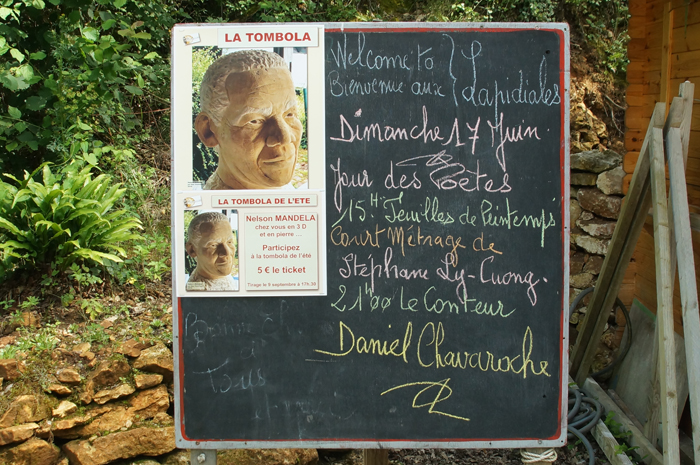 LA TOMBOLA
LA TOMBOLA DE L'ETE
Nelson MANDELA
chez vous en 3 D
et en pierre ...
Participez
à la tombola de l'été
5 € le ticket
Tirage le 9 septembre à 17h30
Welcome to
Bienvenue aux
Lapidiales
Dimanche 17 Juin.
Jour des Poètes
15H Feuilles de Printemps
Court Métrage de
Stéphane Ly-Cuong.
21h00 Le Conteur
Daniel Chavaroche
à
Tous